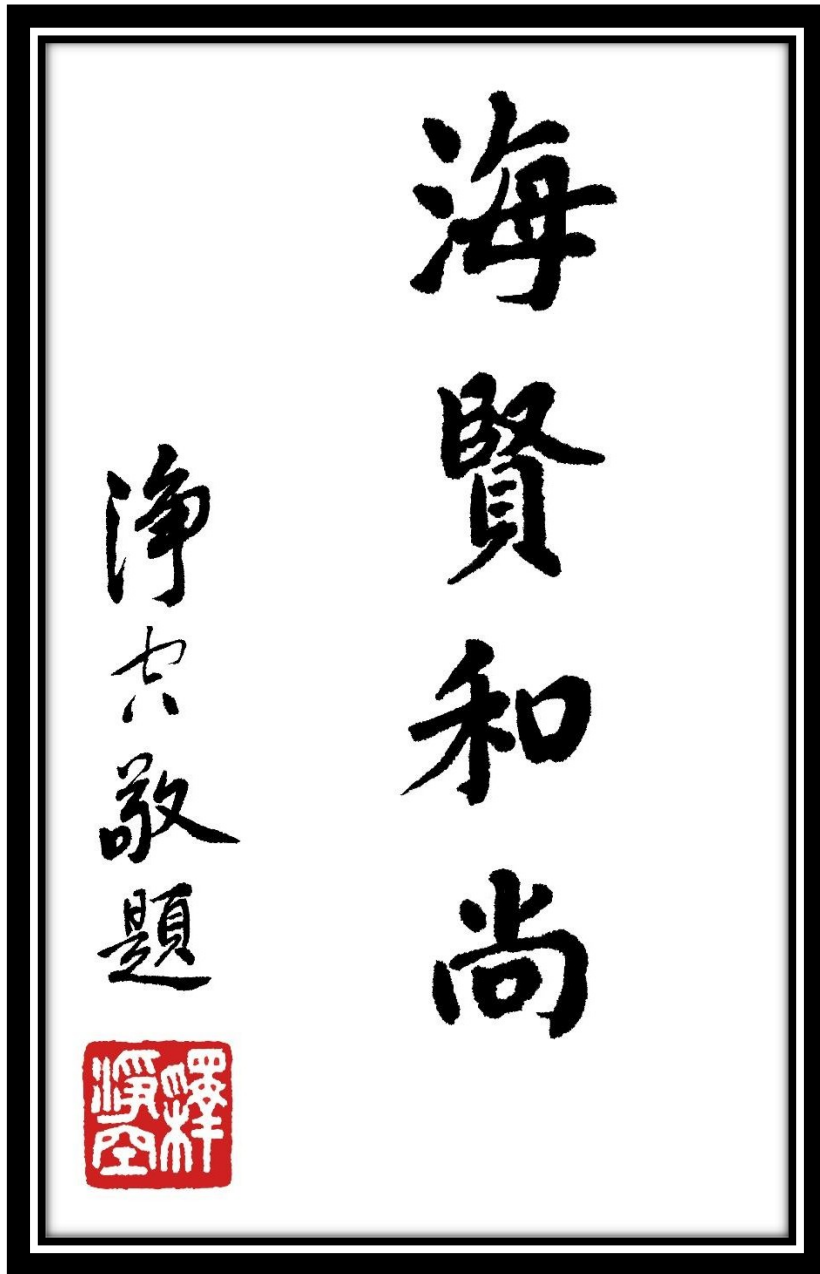 海賢和尚
淨空敬題
釋淨空印